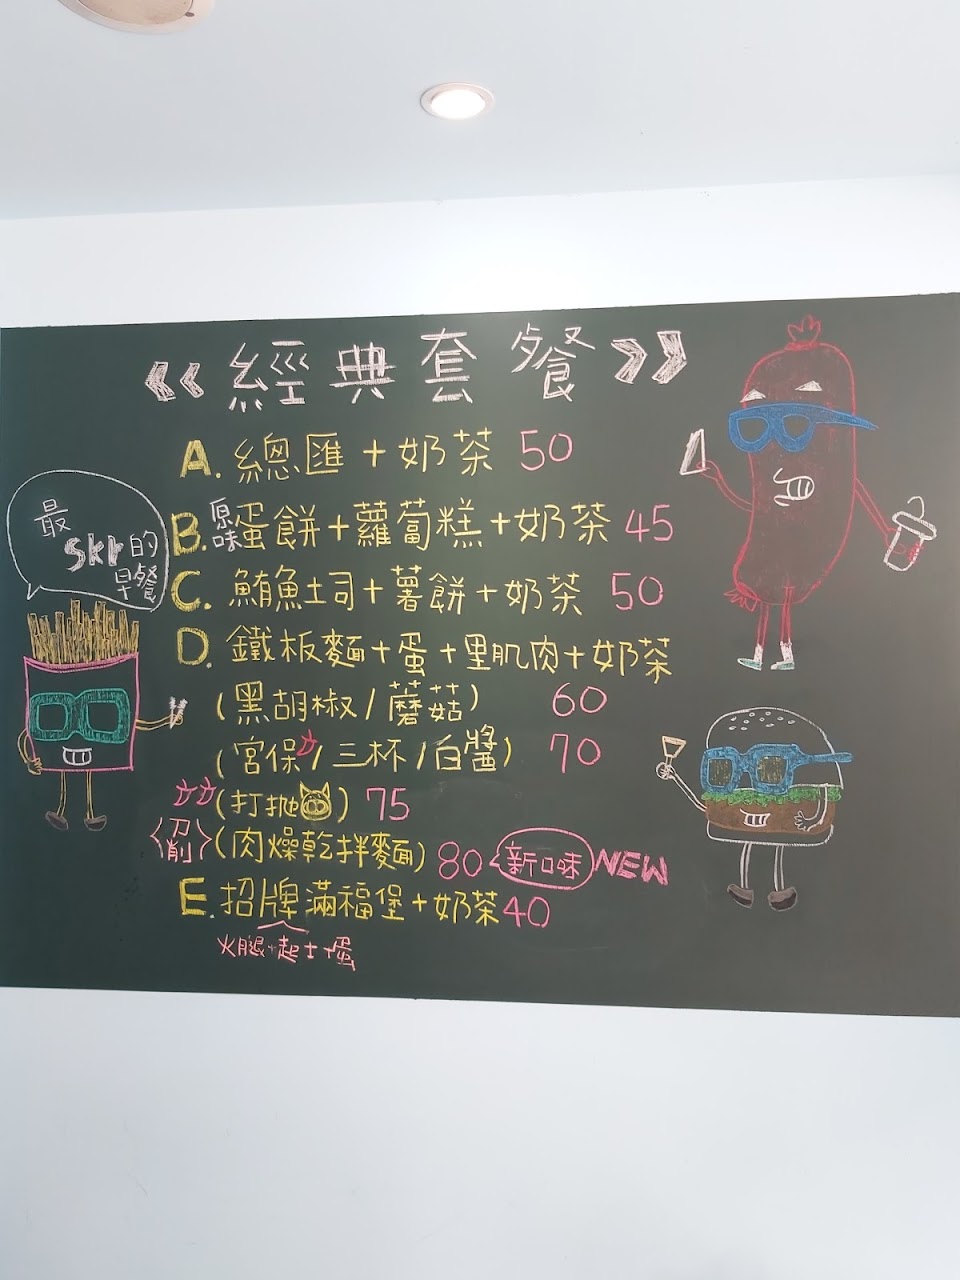 經典套餐
A. 總匯+奶茶 50
B. 原味蛋餅+蘿蔔糕+奶茶 45
C. 鮪魚土司+薯餅+奶茶 50
D. 鐵板麵+蛋+里肌肉+奶茶
(黑胡椒/蘑菇) 60
(宮保/三杯/白醬) 70
(打拋) 75
(肉燥乾拌麵) 80 新口味 NEW
E. 招牌滿福堡+奶茶 40
火腿+起士+蛋
最
skr的
早餐